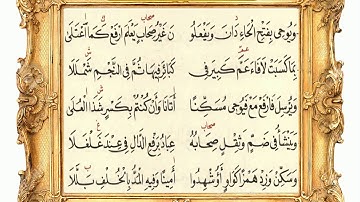 وَيُوحَى بِفَتْحِ الْحَاءِ دَانَ وَيَفْعَلُو نَ غَيْرُ صِحَابٍ يَعْلَمَ ارْفَعْ كَمَا اعْتَلَى
بِمَا كَسَبَتْ لَا فَاءَ عَمَّ كَبِيرَ فِي كَبَائِرَ فِيهَا ثُمَّ فِي النَّجْمِ شَمْلَلَا
وَيُرْسِلَ فَارْفَعْ مَعْ فَيُوحِي مُسَكِّنًا أَتَانَا وَأَنْ كُنْتُمْ بِكَسْرٍ شَذَا الْعُلَى
وَيَنْشَأُ فِي ضَمٍّ وَثِقْلٍ صِحَابُهُ عِبَادُ بِرَفْعِ الدَّالِ فِي عِنْدَ غَلْغَلَا
وَسَكِّنْ وَزِدْ هَمْزًا كَوَاوٍ أَؤُشْهِدُوا أَمِينًا وَفِيهِ الْمَدُّ بِالْخُلْفِ بَلَّلَا